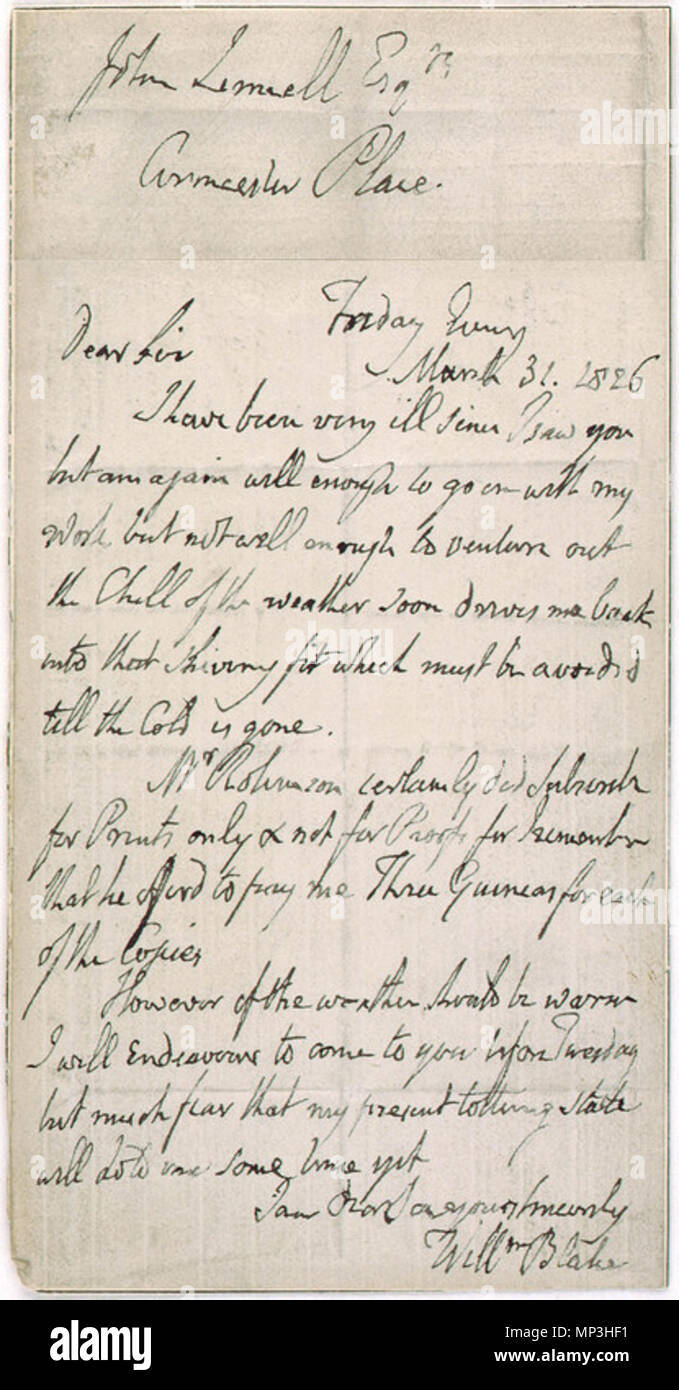 John Linnell Esqre
Cirencester Place.
Friday Eveng
March 31. 1826
Dear Sir
I have been very ill since I saw you
but am again well enough to go on with my
work but not well enough to venture out
the Chill of the weather soon drives me back
into that shivering fit which must be avoided
till the Cold is gone.
Mr Robinson certainly did Subscribe
for Prints only & not for Proofs for I remember
that he offerd to pay me Three Guineas for each
of the Copies
However if the weather should be warm
I will Endeavour to come to you before Tuesday
but much fear that my present tottering state
will hold me some time yet
I am Dear Sir yours sincerely
Willm Blake
alamy
alamy stock photo
alamy
Image ID: MP3HF1
www.alamy.com